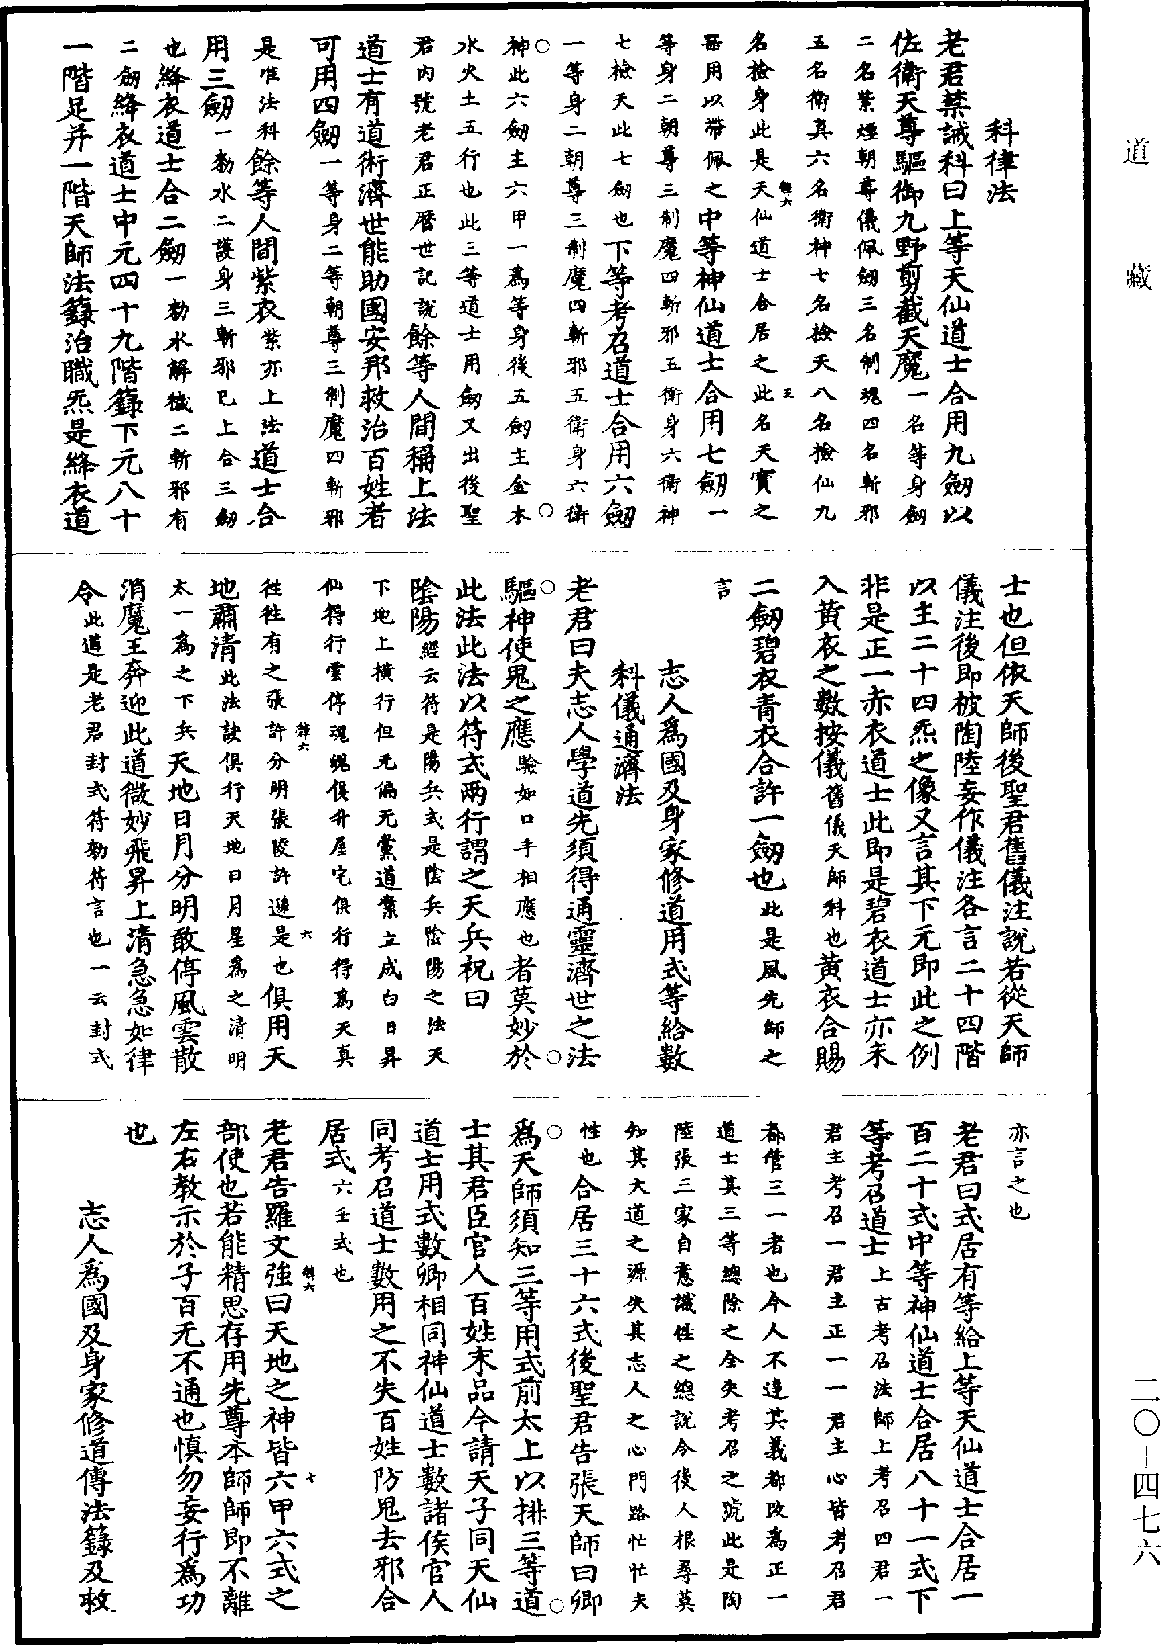 道藏
科律法
老君禁誡科曰上等天仙道士合用九劒以
佐衛天尊驅御九野剪截天魔一名等身劒
二名紫煙朝尊儀佩劒三名制魂四名斬邪
五名衛真六名衛神七名檢天八名檢仙九
名檢身此是天仙道士合居之此名天寶之
器用以帶佩之中等神仙道士合用七劒一
等身二朝尊三制魔四斬邪五衛身六衛神
七檢天此七劒也下等考召道士合用六劒
一等身二朝尊三制魔四斬邪五衛身六衛
神此六劒主六甲一為等身後五劒主金木
水火土五行也此三等道士用劒又出後聖
君內號老君正曆世記說餘等人間稱上法
道士有道術濟世能助國安邦救治百姓者
可用四劒一等身二等朝尊三制魔四斬邪
是唯法科餘等人間紫衣紫亦上法道士合
用三劒一勑水二護身三斬邪已上合三劒
也絳衣道士合二劒一勑水解穢二斬邪有
二劒絳衣道士中元四十九階籙下元八十
一階足并一階天師法籙治職炁是絳衣道
士也但依天師後聖君舊儀注說若從天師
儀注後即被陶陸妄作儀注各言二十四階
以主二十四炁之像又言其下元即此之例
非是正一赤衣道士此即是碧衣道士亦未
入黃衣之數按儀舊儀天師科也黃衣合賜
二劒碧衣青衣合許一劒也此是風先師之
言
志人為國及身家修道用式等給數
科儀通濟法
老君曰夫志人學道先須得通靈濟世之法
驅神使鬼之應驗如口手相應也者莫妙於
此法此法以符式兩行謂之天兵祝曰
陰陽經云符是陽兵式是陰兵陰陽之法天
下地上橫行但无偏无黨道業立成白日昇
仙得行雲停魂魄俱升屋宅俱行得為天真
往往有之張許分明張陵許遜是也俱用天
地肅清此法訣俱行天地日月星為之清明
太一為之下兵天地日月分明敢停風雲散
消魔王奔迎此道微妙飛昇上清急急如律
令此道是老君封式符勑符言也一云封式
亦言之也
老君曰式居有等給上等天仙道士合居一
百二十式中等神仙道士合居八十一式下
等考召道士上古考召法師上考召四君一
君主考召一君主正一一君主心皆考召君
都管三一者也今人不達其義都改為正一
道士其三等總除之全失考召之號此是陶
陸張三家自意識性之總說今後人根尋莫
知其大道之源失其志人之心門路忙忙夫
性也合居三十六式後聖君告張天師曰卿
為天師須知三等用式前太上以排三等道
士其君臣官人百姓末品今請天子同天仙
道士用式數卿相同神仙道士數諸侯官人
同考召道士數用之不失百姓防鬼去邪合
居式六壬式也
老君告羅文強曰天地之神皆六甲六式之
部使也若能精思存用先尊本師師即不離
左右教示於子百无不通也慎勿妄行為功
也
志人為國及身家修道傳法籙及救
二〇—四七六